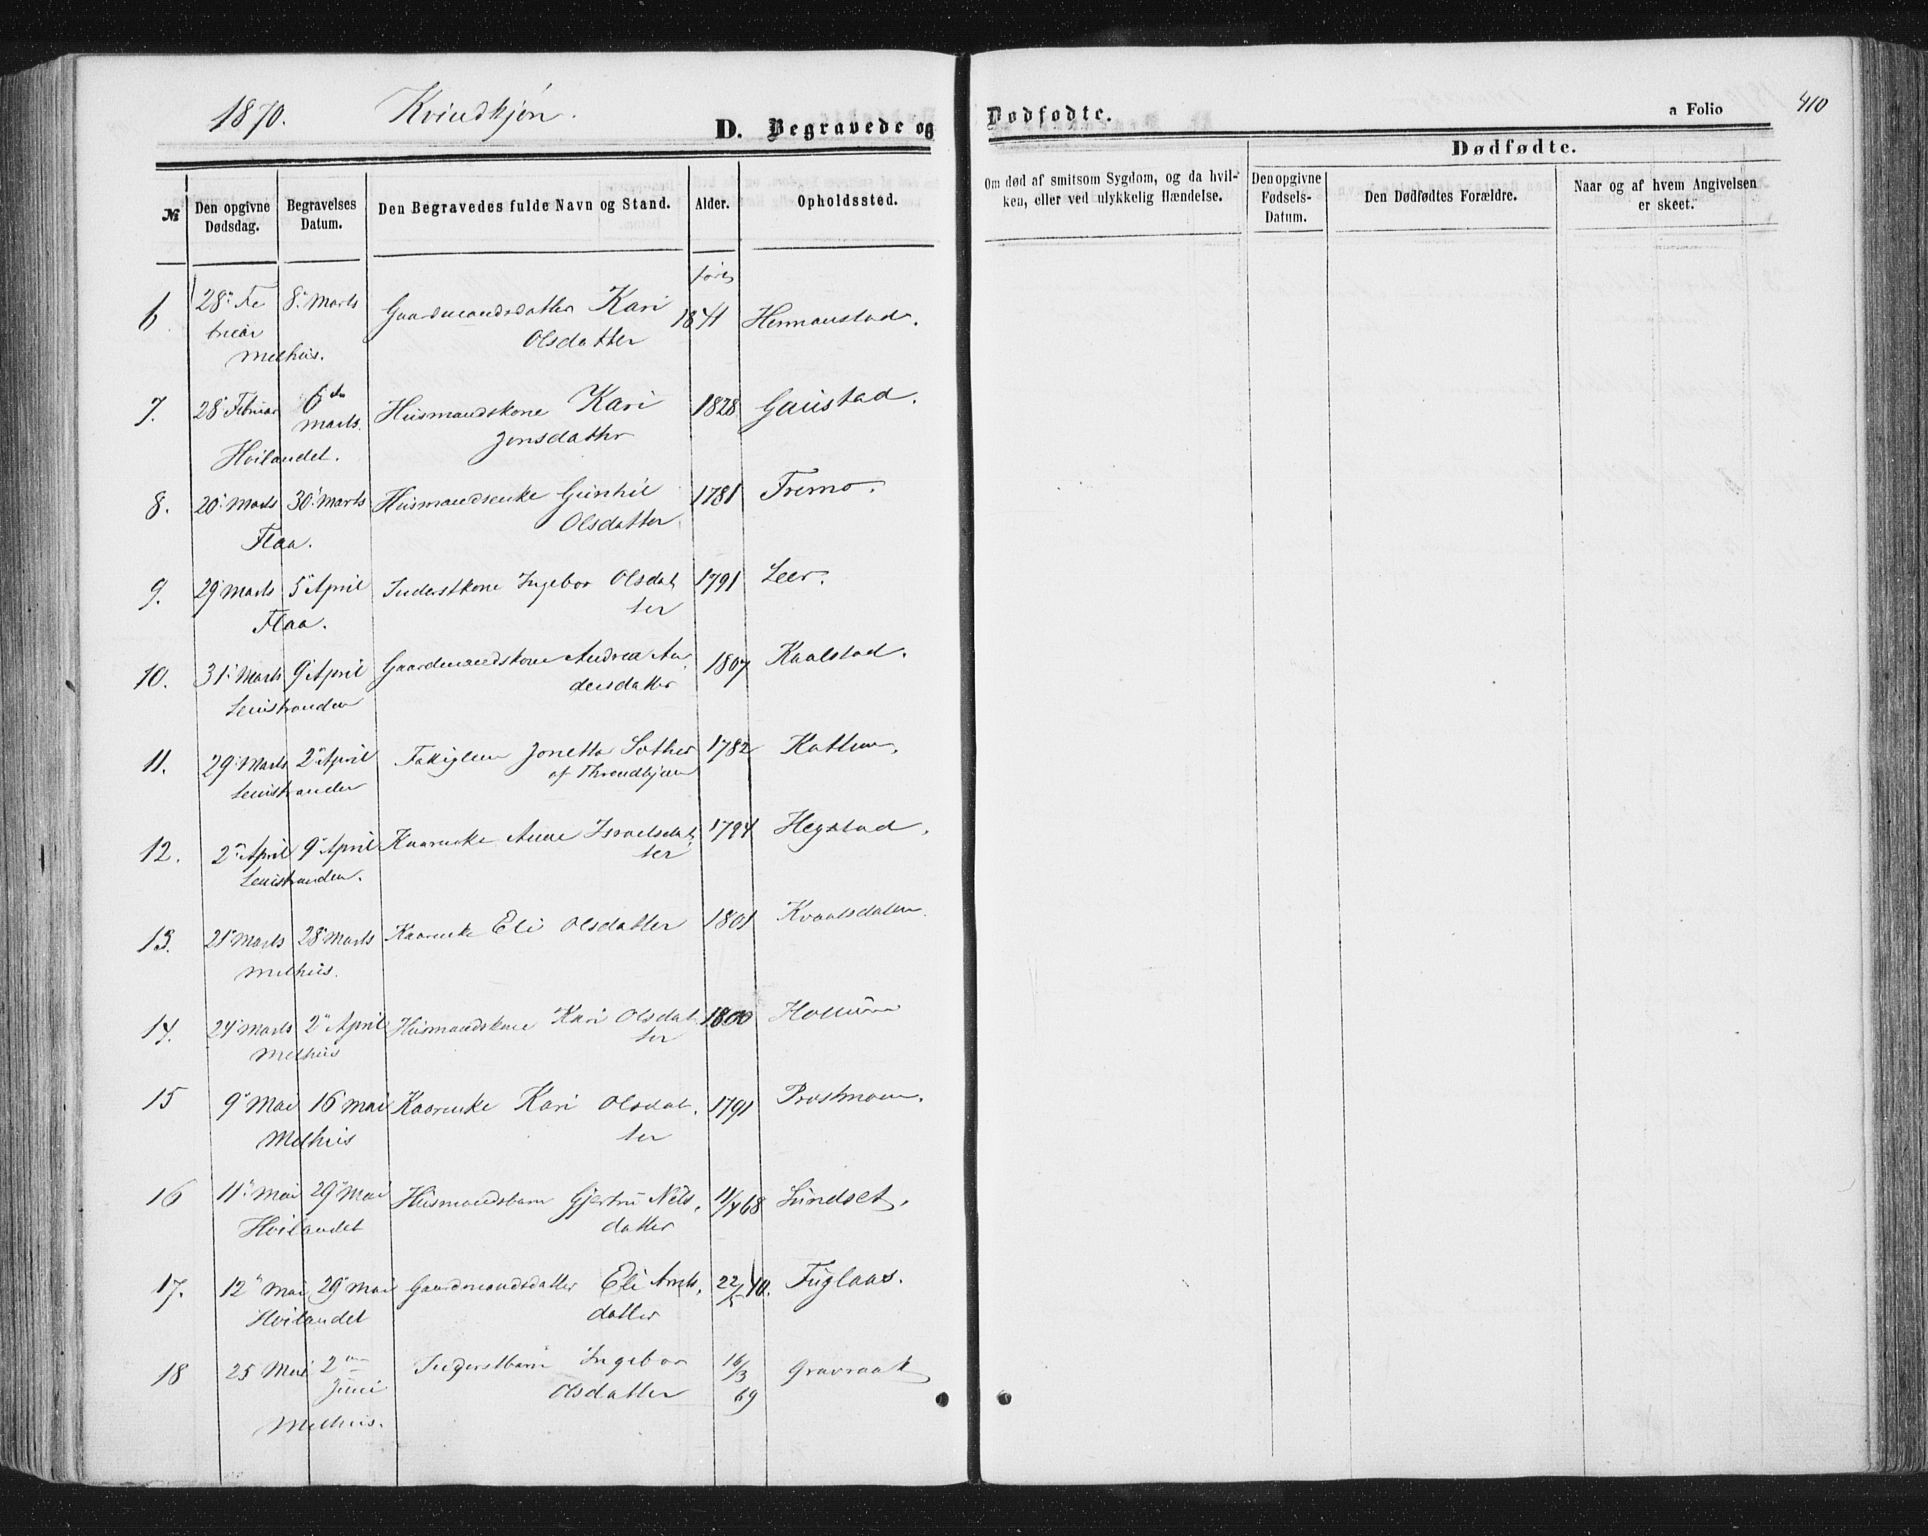 1870. Kvindkjøn.
D. Begravede og Dødfødte.
a Folio 410
№
Den opgivne Dødsdag.
Begravelses Datum.
Den Begravedes fulde Navn og Stand.
Alder.
Opholdssted.
Om død af smitsom Sygdom, og da hvilken, eller ved ulykkelig Hændelse.
Dødfødte.
Den opgivne Fødsels-Datum.
Den Dødfødtes Forældre.
Naar og af hvem Angivelsen er skeet.
6 28 Fe 8 Marts Gaardmandsdatter Kari 1841 Hermanstad.
bruar Olsdatter
Melhus.
7. 28 Februar 6te Marts. Husmandskone Kari 1828 Gaustad.
Jonsdatter
Høilandet.
8. 20 Marts 30 Marts Husmandsenke Gunhil 1781 Fremo.
Olsdatter
Flaa.
9. 29 Marts 5 April Inderstkone Ingebor Olsdat 1791 Leer.
ter
Flaa.
10. 31 Marts 9 April Gaardmandskone Andrea An 1807 Kaalstad.
dersdatter
Leinstranden
11. 29 Marts 2 April Jonetta 1782 Kattem.
af Throndhjem
Leinstranden
12. 2 April 9 April Kaarenke Anne Israelsdat 1794 Hegstad.
ter
Leinstranden.
13. 21 Marts 28 Marts Kaarenke Eli Olsdatter 1801 Kvaalsdalen.
Melhus.
14. 24 Marts 2 April Husmandskone Kari Olsdat 1800
ter
Melhus
15 9 Mai 16 Mai Kaarenke Kari Olsdat 1791 Prestmoen.
ter
Melhus
16 11 Mai 29 Mai Husmandsbarn Gjertru Nils 11/4 68 Lundset.
datter
Høilandet
17. 12 Mai 29 Mai Gaardmandsdatter Eli Arnts 22/5 40. Fuglaas.
datter
Høilandet
18 25 Mai 2den Inderstbarn Ingebor 16/3 69 Gravraak
Juni Olsdatter
Melhus.